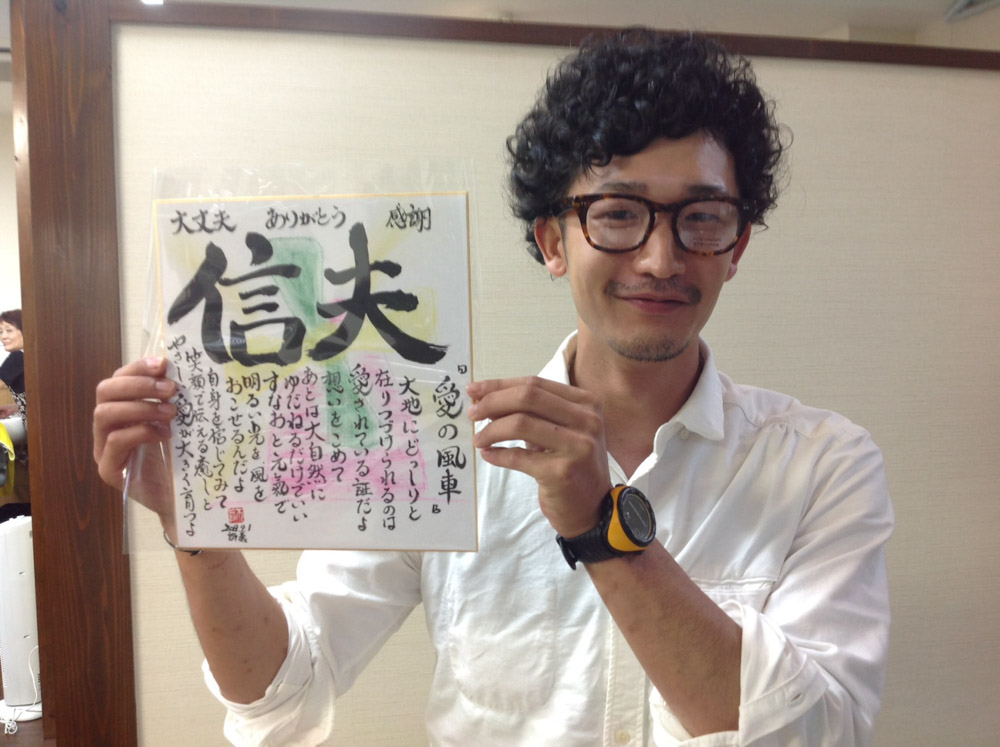 大丈夫 ありがとう 感謝
信夫
『愛の風車』
大地にどっしりと
在りつづけられるのは
愛されている証だよ
想いをこめて
あとは大自然に
ゆだねるだけでいい
すなおと元氣で
明るい光を風を
おこせるんだよ
自身を信じてみて
笑顔で伝える癒しと
やさしい愛が大きく育つよ